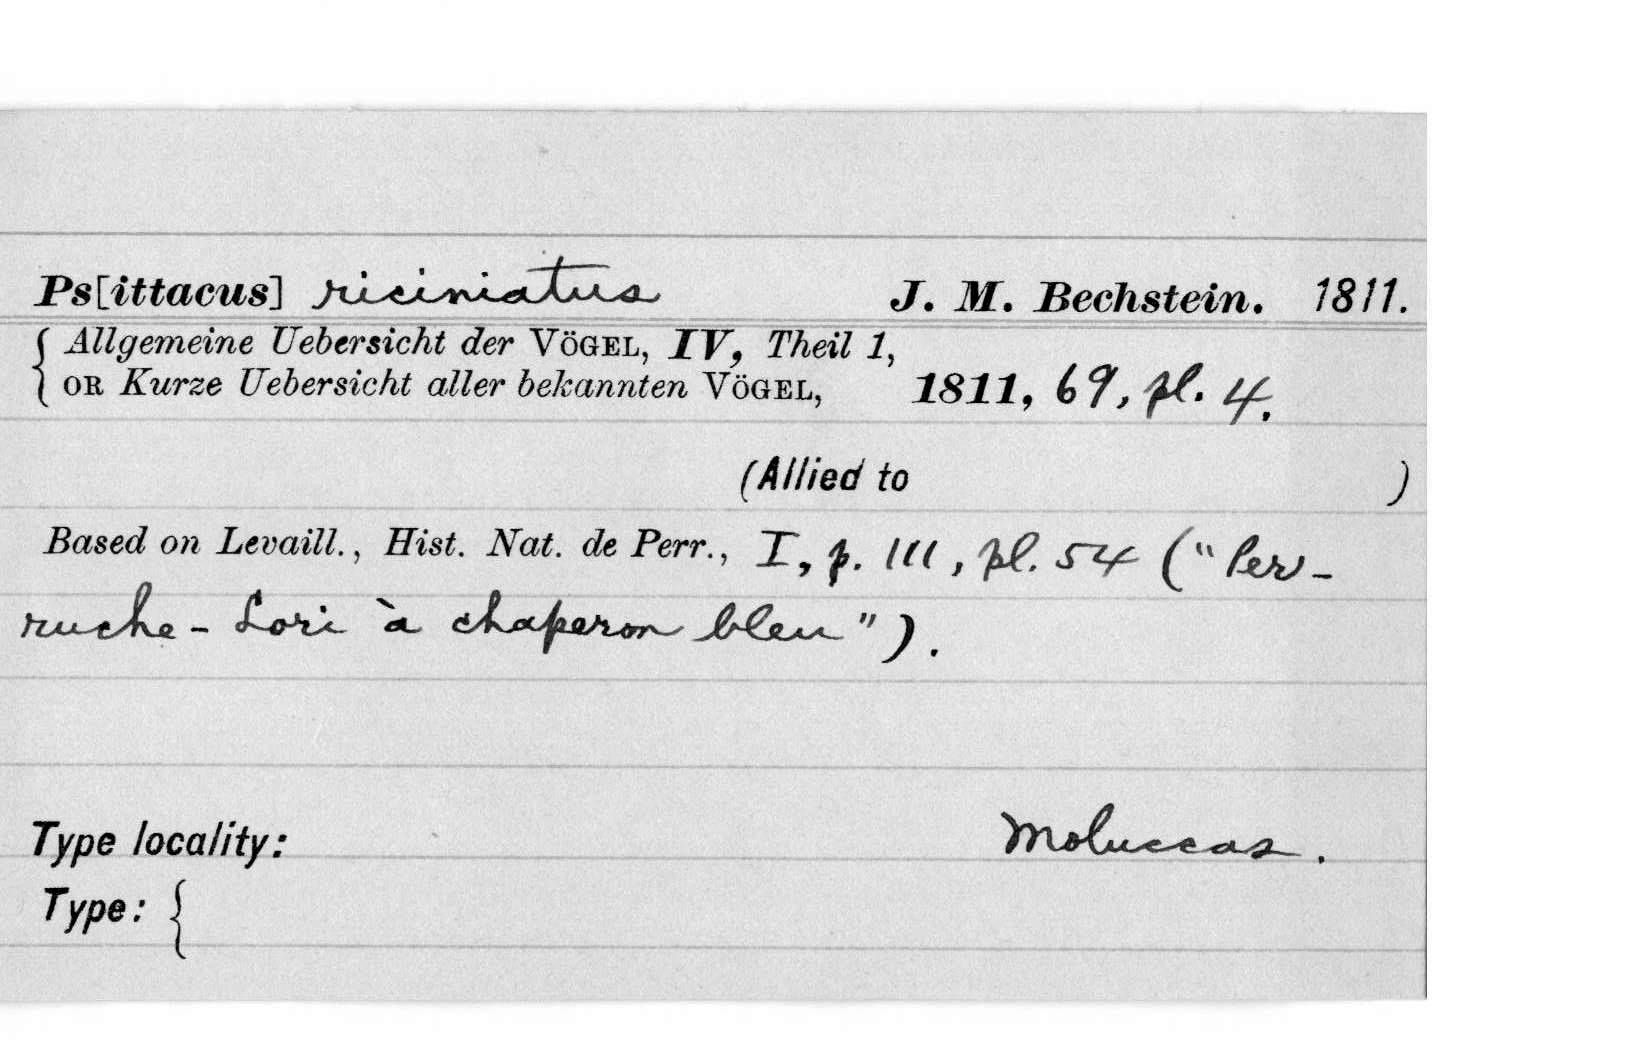 Ps[ittacus] riciniatus J. M. Bechstein. 1811.
{ Allgemeine Uebersicht der VÖGEL, IV, Theil 1,
OR Kurze Uebersicht aller bekannten VÖGEL, 1811, 69, pl. 4.
(Allied to )
Based on Levaill., Hist. Nat. de Perr., I, p. 111, pl. 54 ("Per-
ruche-Lori à chaperon bleu").
Type locality: Moluccas.
Type: {